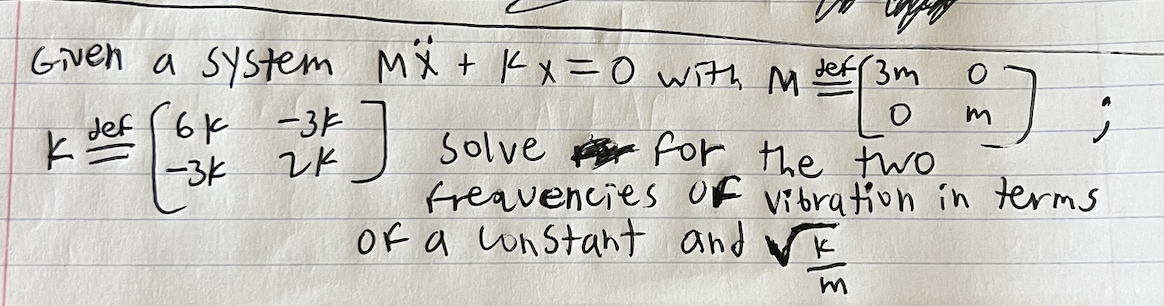 Given a system Mẍ + Kx = 0 with M ≝ [3m 0
0 m] ;
K ≝ [6k -3k
-3k 2k] solve for the two
frequencies of vibration in terms
of a constant and √(k/m)